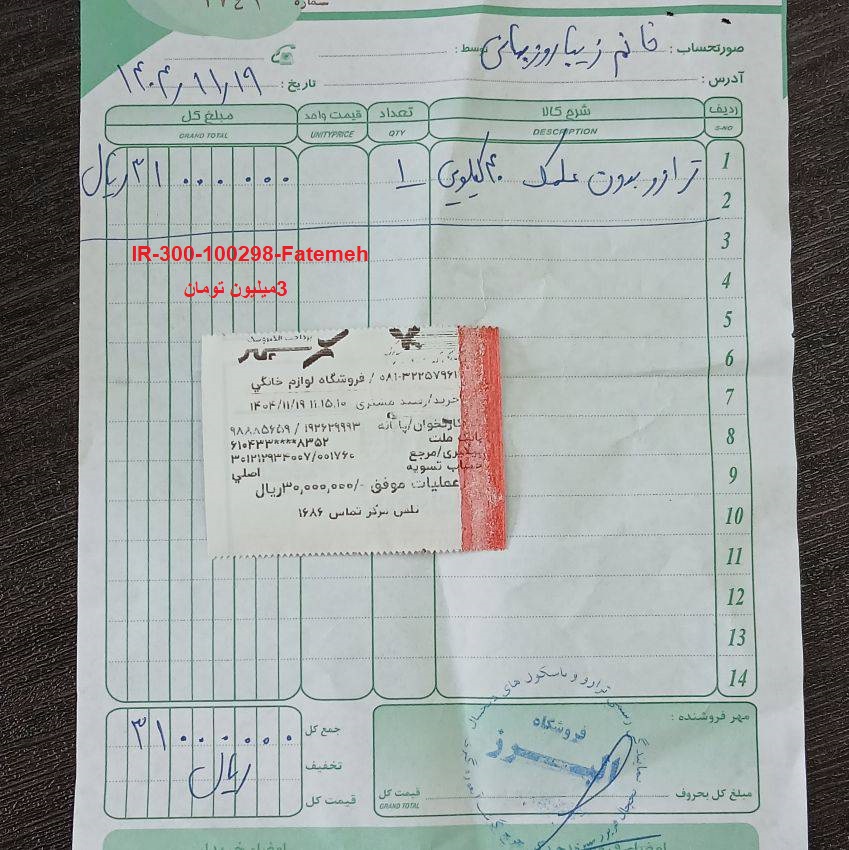 شماره
صورتحساب : خانم زیبا روزبهانی توسط :
آدرس : تاریخ : ۱۴۰۴/۱۱/۱۹
ردیف شرح کالا تعداد قیمت واحد مبلغ کل
S-NO DESCRIPTION QTY UNITYPRICE GRAND TOTAL
1 ترازو بدون علمک ۴۰ کیلویی ۱ ۳۱۰۰۰۰۰۰ ریال
2
3
IR-300-100298-Fatemeh
4
3میلیون تومان
5
6
7
8
9
10
11
12
13
14
پرداخت الکترونیک
۰۸۱-۳۲۲۵۷۹۶۱ / فروشگاه لوازم خانگي
خرید/رسید مشتری ۱۴۰۴/۱۱/۱۹ ۱۱:۱۵:۱۰
کارتخوان/پایانه ۱۹۲۶۲۹۹۹۳ / ۹۸۸۸۵۶۵۹
بانک ملت ۶۱۰۴۳۳****۸۳۵۲
پیگیری/مرجع ۳۰۱۲۱۲۹۳۴۰۰۷/۰۰۱۷۶۰
حساب تسویه اصلي
عملیات موفق -/۳۰,۰۰۰,۰۰۰ریال
تلفن مرکز تماس ۱۶۸۶
مهر فروشنده :
فروشگاه
البرز
جمع کل ۳۱۰۰۰۰۰۰
تخفیف
ریال
قیمت کل
مبلغ کل بحروف قیمت کل
GRAND TOTAL
امضاء خریدار